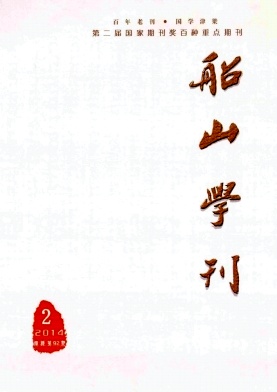 百年老刊 • 国学津梁
第二届国家期刊奖百种重点期刊
船山學刊
2
2014